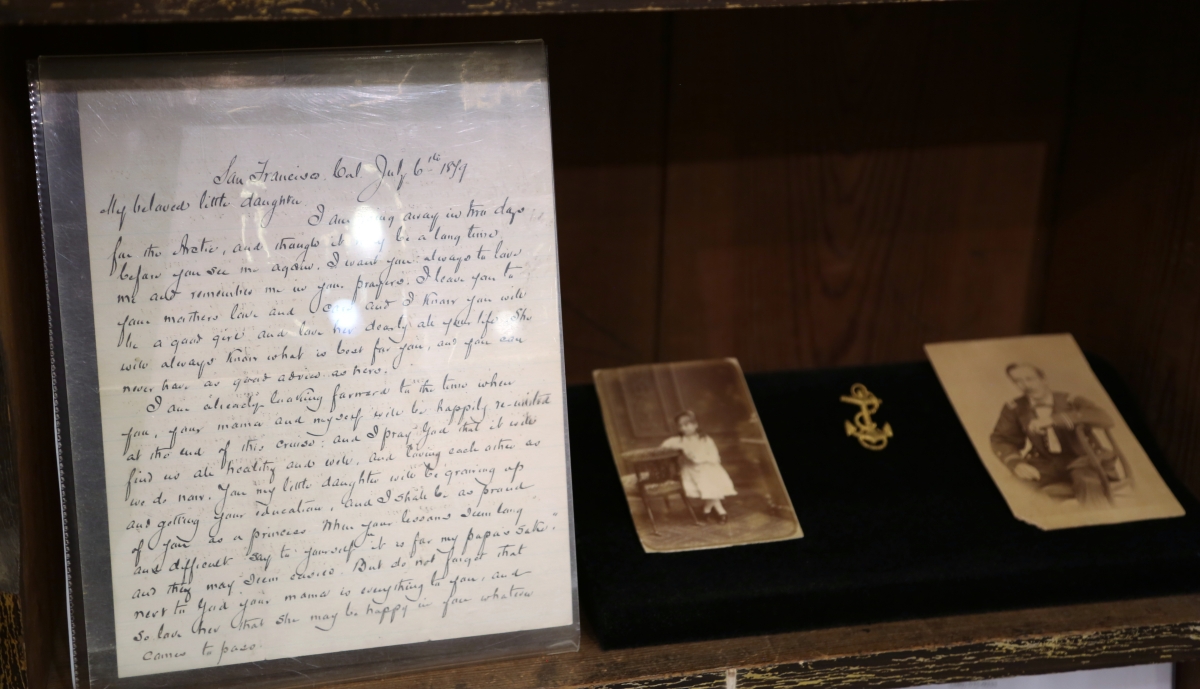 San Francisco. Cal July 6th 1879
My beloved little daughter
I am going away in two days
for the Arctic, and though it may be a long time
before you see me again, I want you always to love
me and remember me in your prayers. I leave you to
your mothers love and care and I know you will
be a good girl and love her dearly all your life. She
will always know what is best for you, and you can
never have as good advice as hers.
I am already looking forward to the time when
you, your mama and myself will be happily re-united
at the end of this cruise: and I pray God that it will
find us all healthy and well, and loving each other as
we do now. You my little daughter will be growing up
and getting your education, and I shall be as proud
of you as a princess. When your lessons seem long
and difficult say to yourself "it is for my papa's sake",
and they may seem easier. But do not forget that
next to God your mama is everything to you, and
so love her that she may be happy in you whatever
comes to pass.